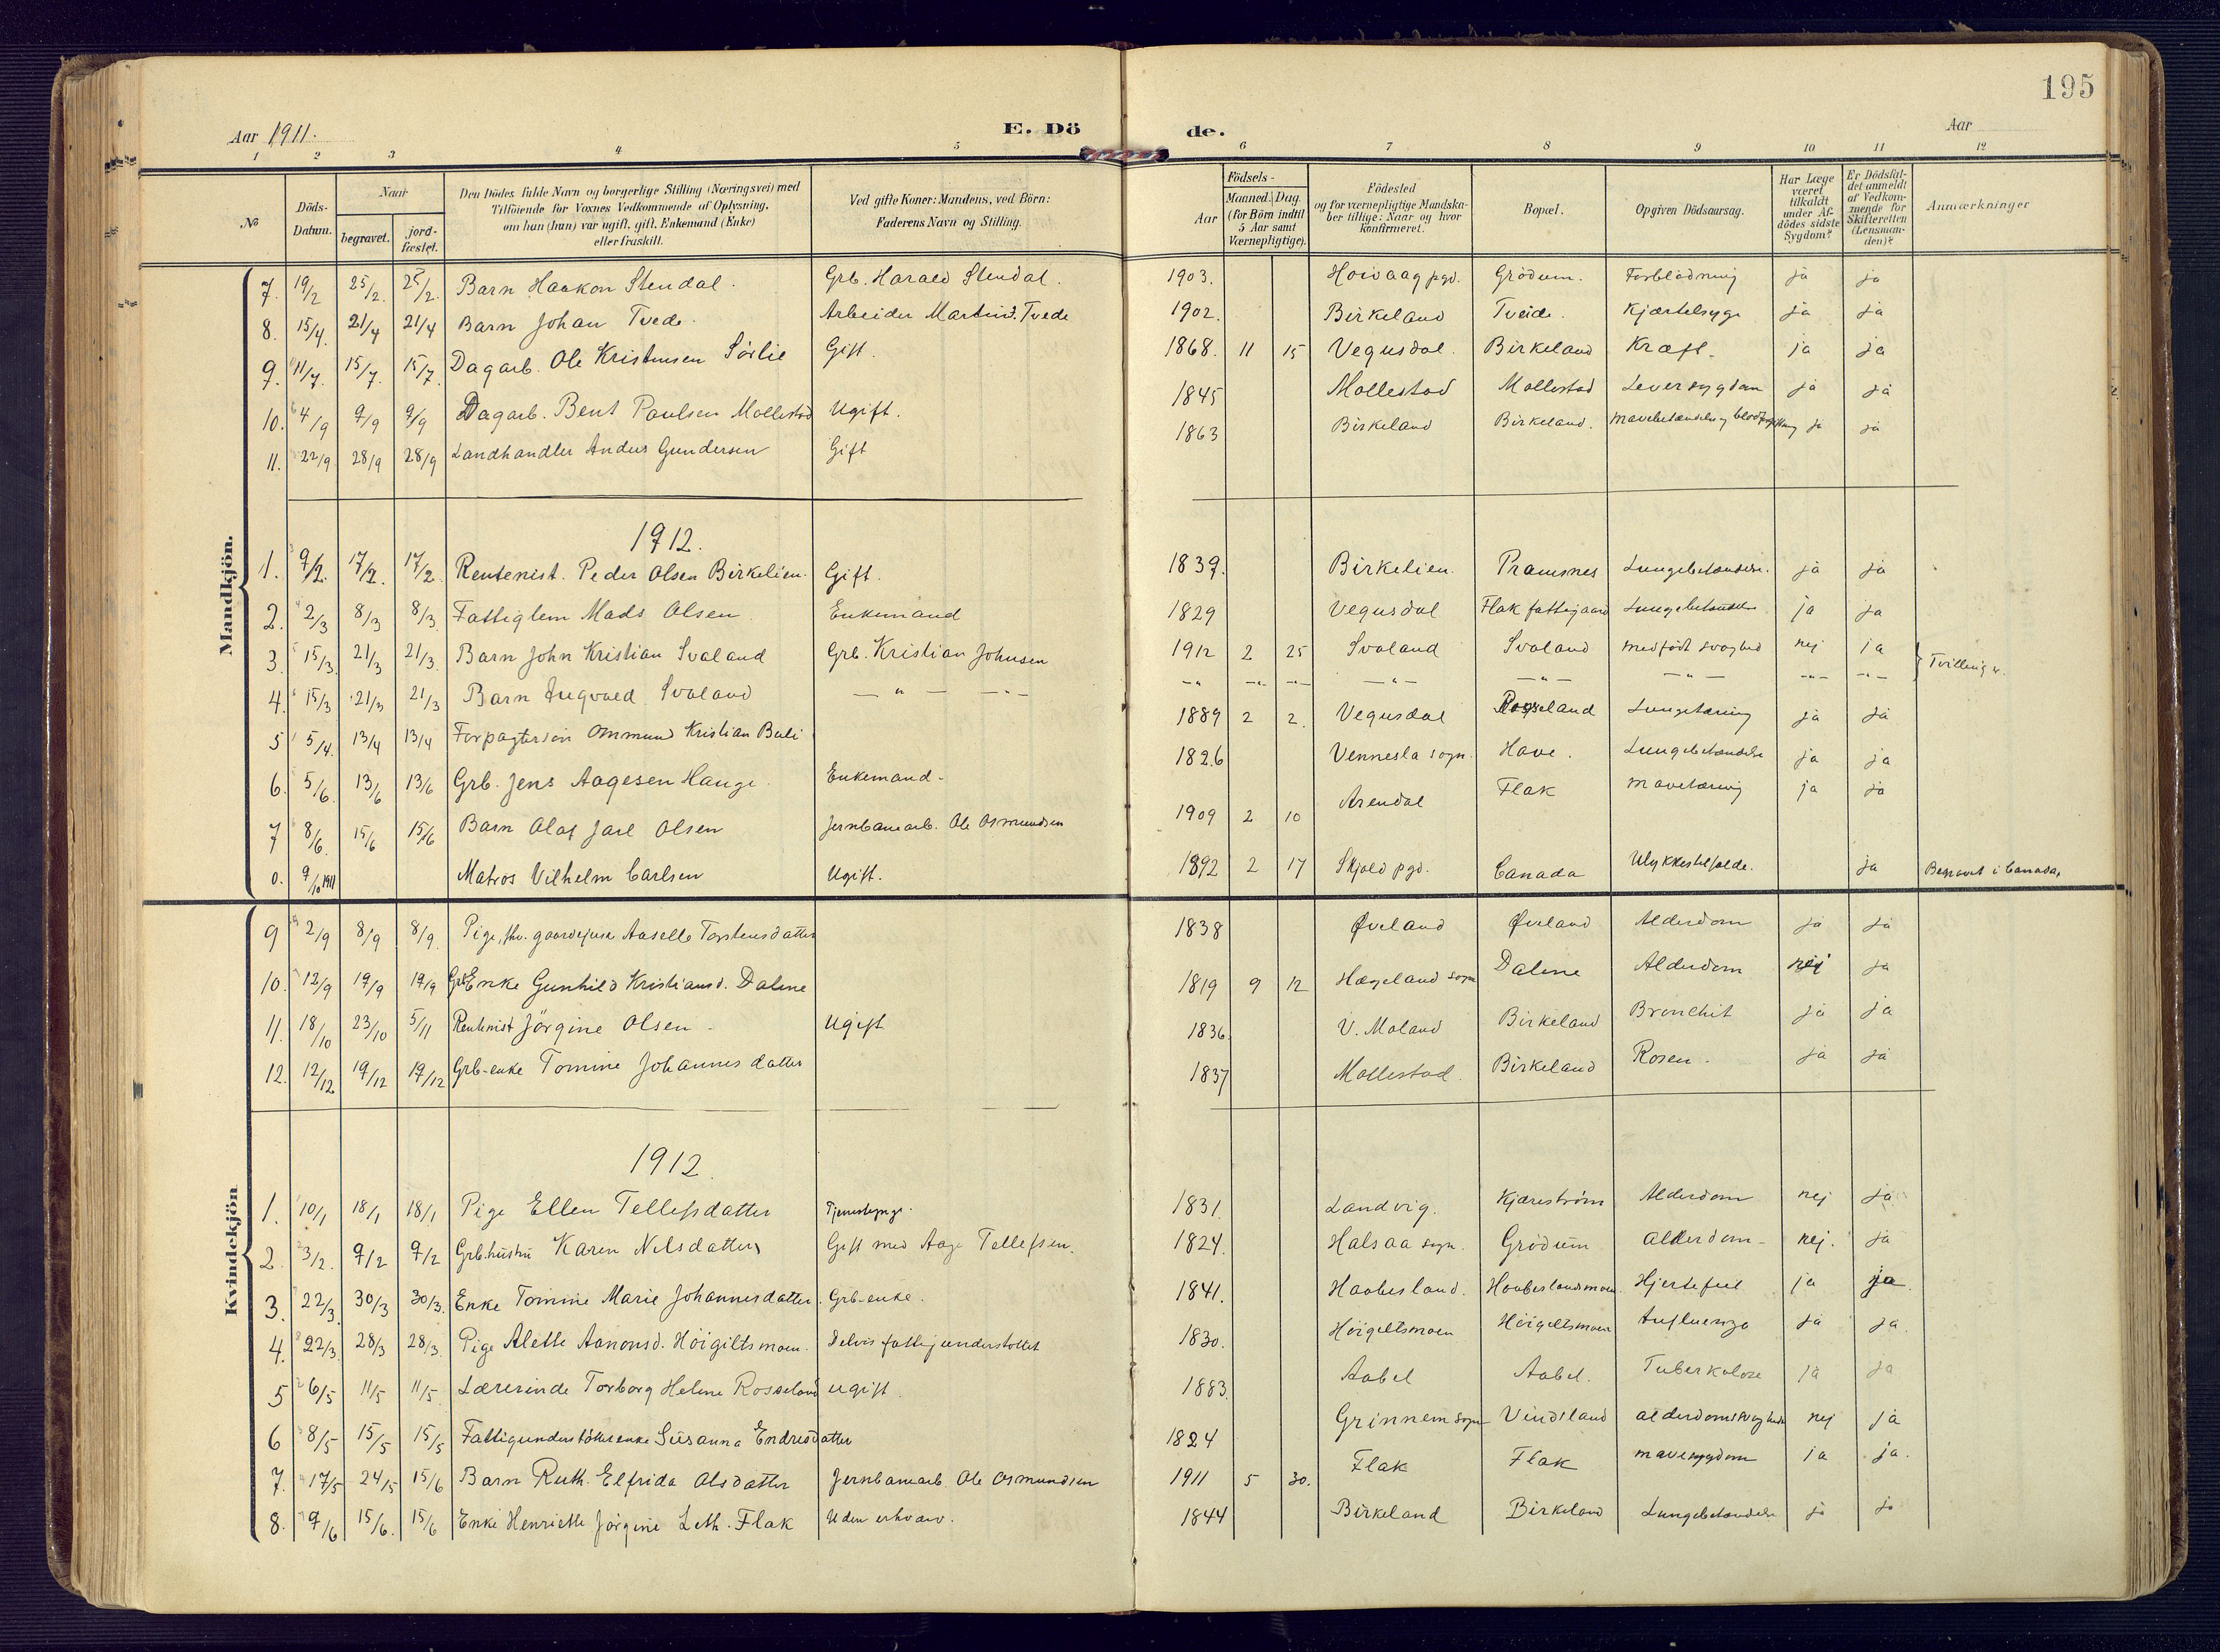 195
Aar 1911.
E. Dö de.
Aar
1 2 3 4 5 6 7 8 9 10 11 12
No
Döds-Datum.
Naar
begravet.
jord-fæstet.
Den Dödes fulde Navn og borgerlige Stilling (Næringsvei) med Tilföiende for Voxnes Vedkommende af Oplysning, om han (hun) var ugift, gift, Enkemand (Enke) eller fraskilt.
Ved gifte Koner: Mandens, ved Börn: Faderens Navn og Stilling.
Födsels-
Aar
Maaned. Dag. (for Börn indtil 5 Aar samt Værnepligtige).
Födested og for værnepligtige Mandskaber tillige: Naar og hvor konfirmeret.
Bopæl.
Opgiven Dödsaarsag.
Har Læge været tilkaldt under Afdödes sidste Sygdom?
Er Dödsfaldet anmeldt af Vedkommende for Skifteretten (Lensmanden)?
Anmærkninger
Mandkjön.
7. 19/2 25/2. 25/2. Barn Haakon Stendal. Grb. Harald Stendal. 1903. Hoivaag pgd. Grödum. Forblödning ja ja
8. 15/4. 21/4 21/4 Barn Johan Tvede. Arbeider Martin T. Tvede 1902. Birkeland Tveide. Kjærtelsyge ja ja
9. 11/7. 15/7. 15/7. Dagarb. Ole Kristensen Sörlie Gift. 1868. 11 15 Vegusdal. Birkeland Kræft. ja ja
10. 4/9 9/9 9/9 Dagarb. Bent Paulsen Mollestad Ugift. 1845 Mollestad Mollestad Leversygdom ja ja
11. 22/9 28/9 28/9 Landhandler Anders Gundersen Gift 1863 Birkeland Birkeland. ja ja
1912.
1. 9/2. 17/2. 17/2. Rentenist. Peder Olsen Birkelien. Gift. 1839. Birkelien. Pramsnes Lungebetændelse. ja ja
2. 2/3 8/3 8/3 Fattiglem Mads Olsen Enkemand 1829 Vegusdal Flak fattiggaard Lungebetændelse ja ja
3. 15/3. 21/3 21/3. Barn John Kristian Svaland Grb. Kristian Johnsen 1912 2 25 Svaland Svaland medfödt svaghed nej ja } Tvillinger.
4. 15/3 21/3 21/3 Barn Ingvald Svaland — " — — " — — " — — " — — " — — " — — " — — " — — " — — " —
5 5/4. 13/4 13/4 Forpagtersön Ommund Kristian Bali 1889 2 2. Vegusdal Rosseland Lungetæring ja ja
6. 5/6. 13/6 13/6 Grb. Jens Aagesen Hauge. Enkemand. 1826 Vennesla sogn. Have. Lungebetændelse ja ja
7 8/6. 15/6 15/6 Barn Olaf Jarl Olsen Jernbanearb. Ole Osmundsen 1909 2 10 Arendal Flak mavetæring ja ja
0. 9/10 1911 Matros Vilhelm Carlsen Ugift. 1892 2 17 Skjold pgd. Canada Ulykkestilfælde. ja Begravet i Canada.
Kvindekjön
9 2/9 8/9 8/9. Pige, fhv. gaardejerske Aaselle Torstensdatter 1838 Øveland Øveland Alderdom ja ja
10. 12/9 19/9 19/9 Grb Enke Gunhild Kristiansd. Dalene 1819 9 12 Hægeland sogn Dalene Alderdom nej ja
11. 18/10 23/10 5/11 Rentenist Jörgine Olsen. Ugift 1836. V. Moland Birkeland Bronchit ja ja
12. 12/12 19/12 19/12 Grb-enke Tomine Johannesdatter 1837 Mollestad. Birkeland Rosen. ja ja
1912.
1. 10/1 18/1 18/1 Pige Ellen Tellefsdatter Tjenestepige. 1831. Landvig. Kjæreström Alderdom nej ja
2. 3/2. 9/2 9/2 Grb.hustru Karen Nilsdatter Gift med Aage Tellefsen. 1824. Halsaa sogn. Grödum Alderdom nej. ja
3. 22/3. 30/3 30/3. Enke Tomine Marie Johannesdatter. Grb-enke. 1841. Haabesland. Haabeslandsmoen. Hjertefeil ja ja
4. 22/3. 28/3 28/3. Pige Alette Aanonsd. Höigiltsmoen. Delvis fattigunderstöttet 1830. Höigiltsmoen Höigiltsmoen Influenza ja ja.
5 6/5 11/5 11/5. Lærerinde Torborg Helene Rosseland ugift. 1883. Aabel Aabel. Tuberkulose ja ja
6 8/5 15/5 15/5 Fattigunderstöttet enke Susanna Endresdatter 1824 Grinnem sogn Vindsland alderdomssvaghed nej ja
7. 17/5 24/5 15/6 Barn Ruth. Elfrida Olsdatter Jernbanearb. Ole Osmundsen 1911 5 30. Flak Flak mavesygdom ja ja.
8. 9/6 15/6. 15/6 Enke Henriette Jörgine Leth. Flak Uden erhverv. 1844 Birkeland Birkeland Lungebetændelse ja ja